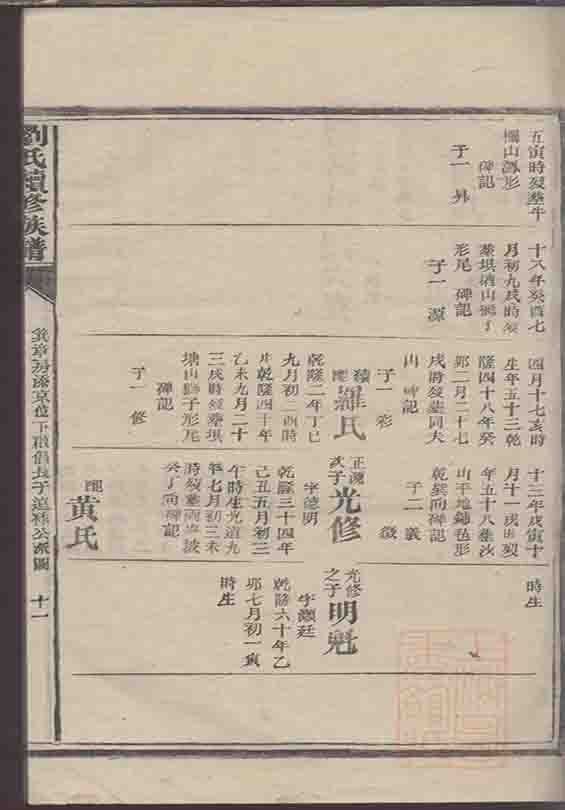 五寅時歿葬牛
欄山馮形
碑記
子一昇
十八年癸酉七
月初九戌時歿
葬垻塘山獅子
形尾 碑記
子一源
四月十七亥時
生年五十三乾
隆四十八年癸
卯二月二十七
戌時歿葬同夫
山 碑記
子一彩
續
羅氏
乾隆二年丁巳
九月初二酉時
生乾隆四十年
乙未九月二十
三戌時歿葬垻
塘山獅子形尾
碑記
子一修
十二年戊寅十
月十一戌時歿
年五十八葬沙
山平地鋪毡形
乾巽向碑記
子二 義
徵
正源
次子
光修
字德明
乾隆三十四年
己丑五月初三
午時生光道九
年七月初三未
時歿葬
癸丁向碑記
黄氏
時生
光修
之子
明魁
字顯廷
乾隆六十年乙
卯七月初一寅
時生
劉氏續修族譜
十一